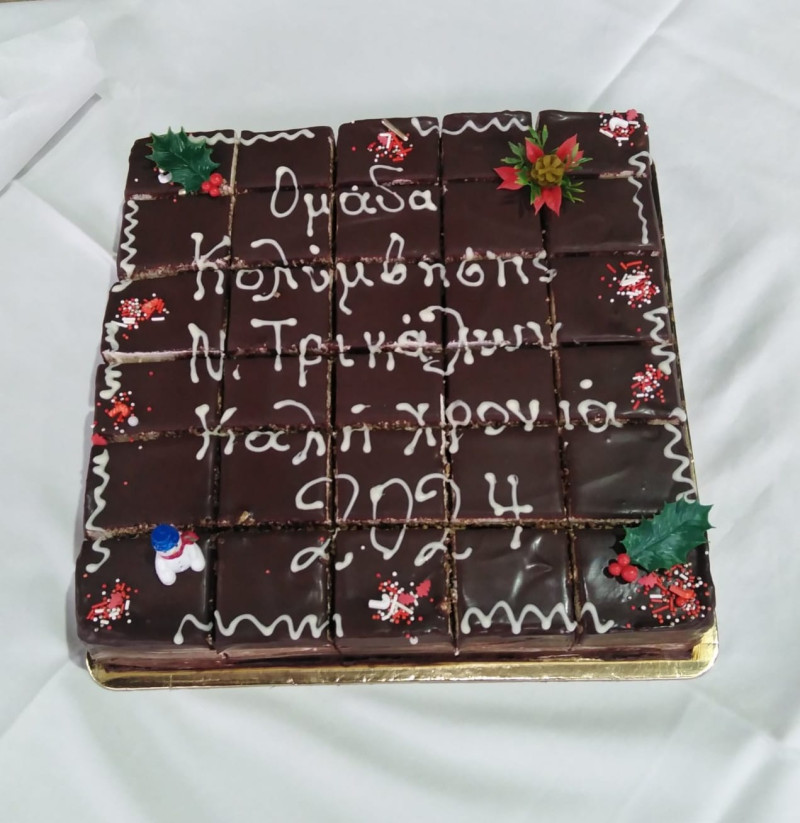 Ομάδα
Κολύμβησης
Ν. Τρικάλων
Καλή χρονιά
2024